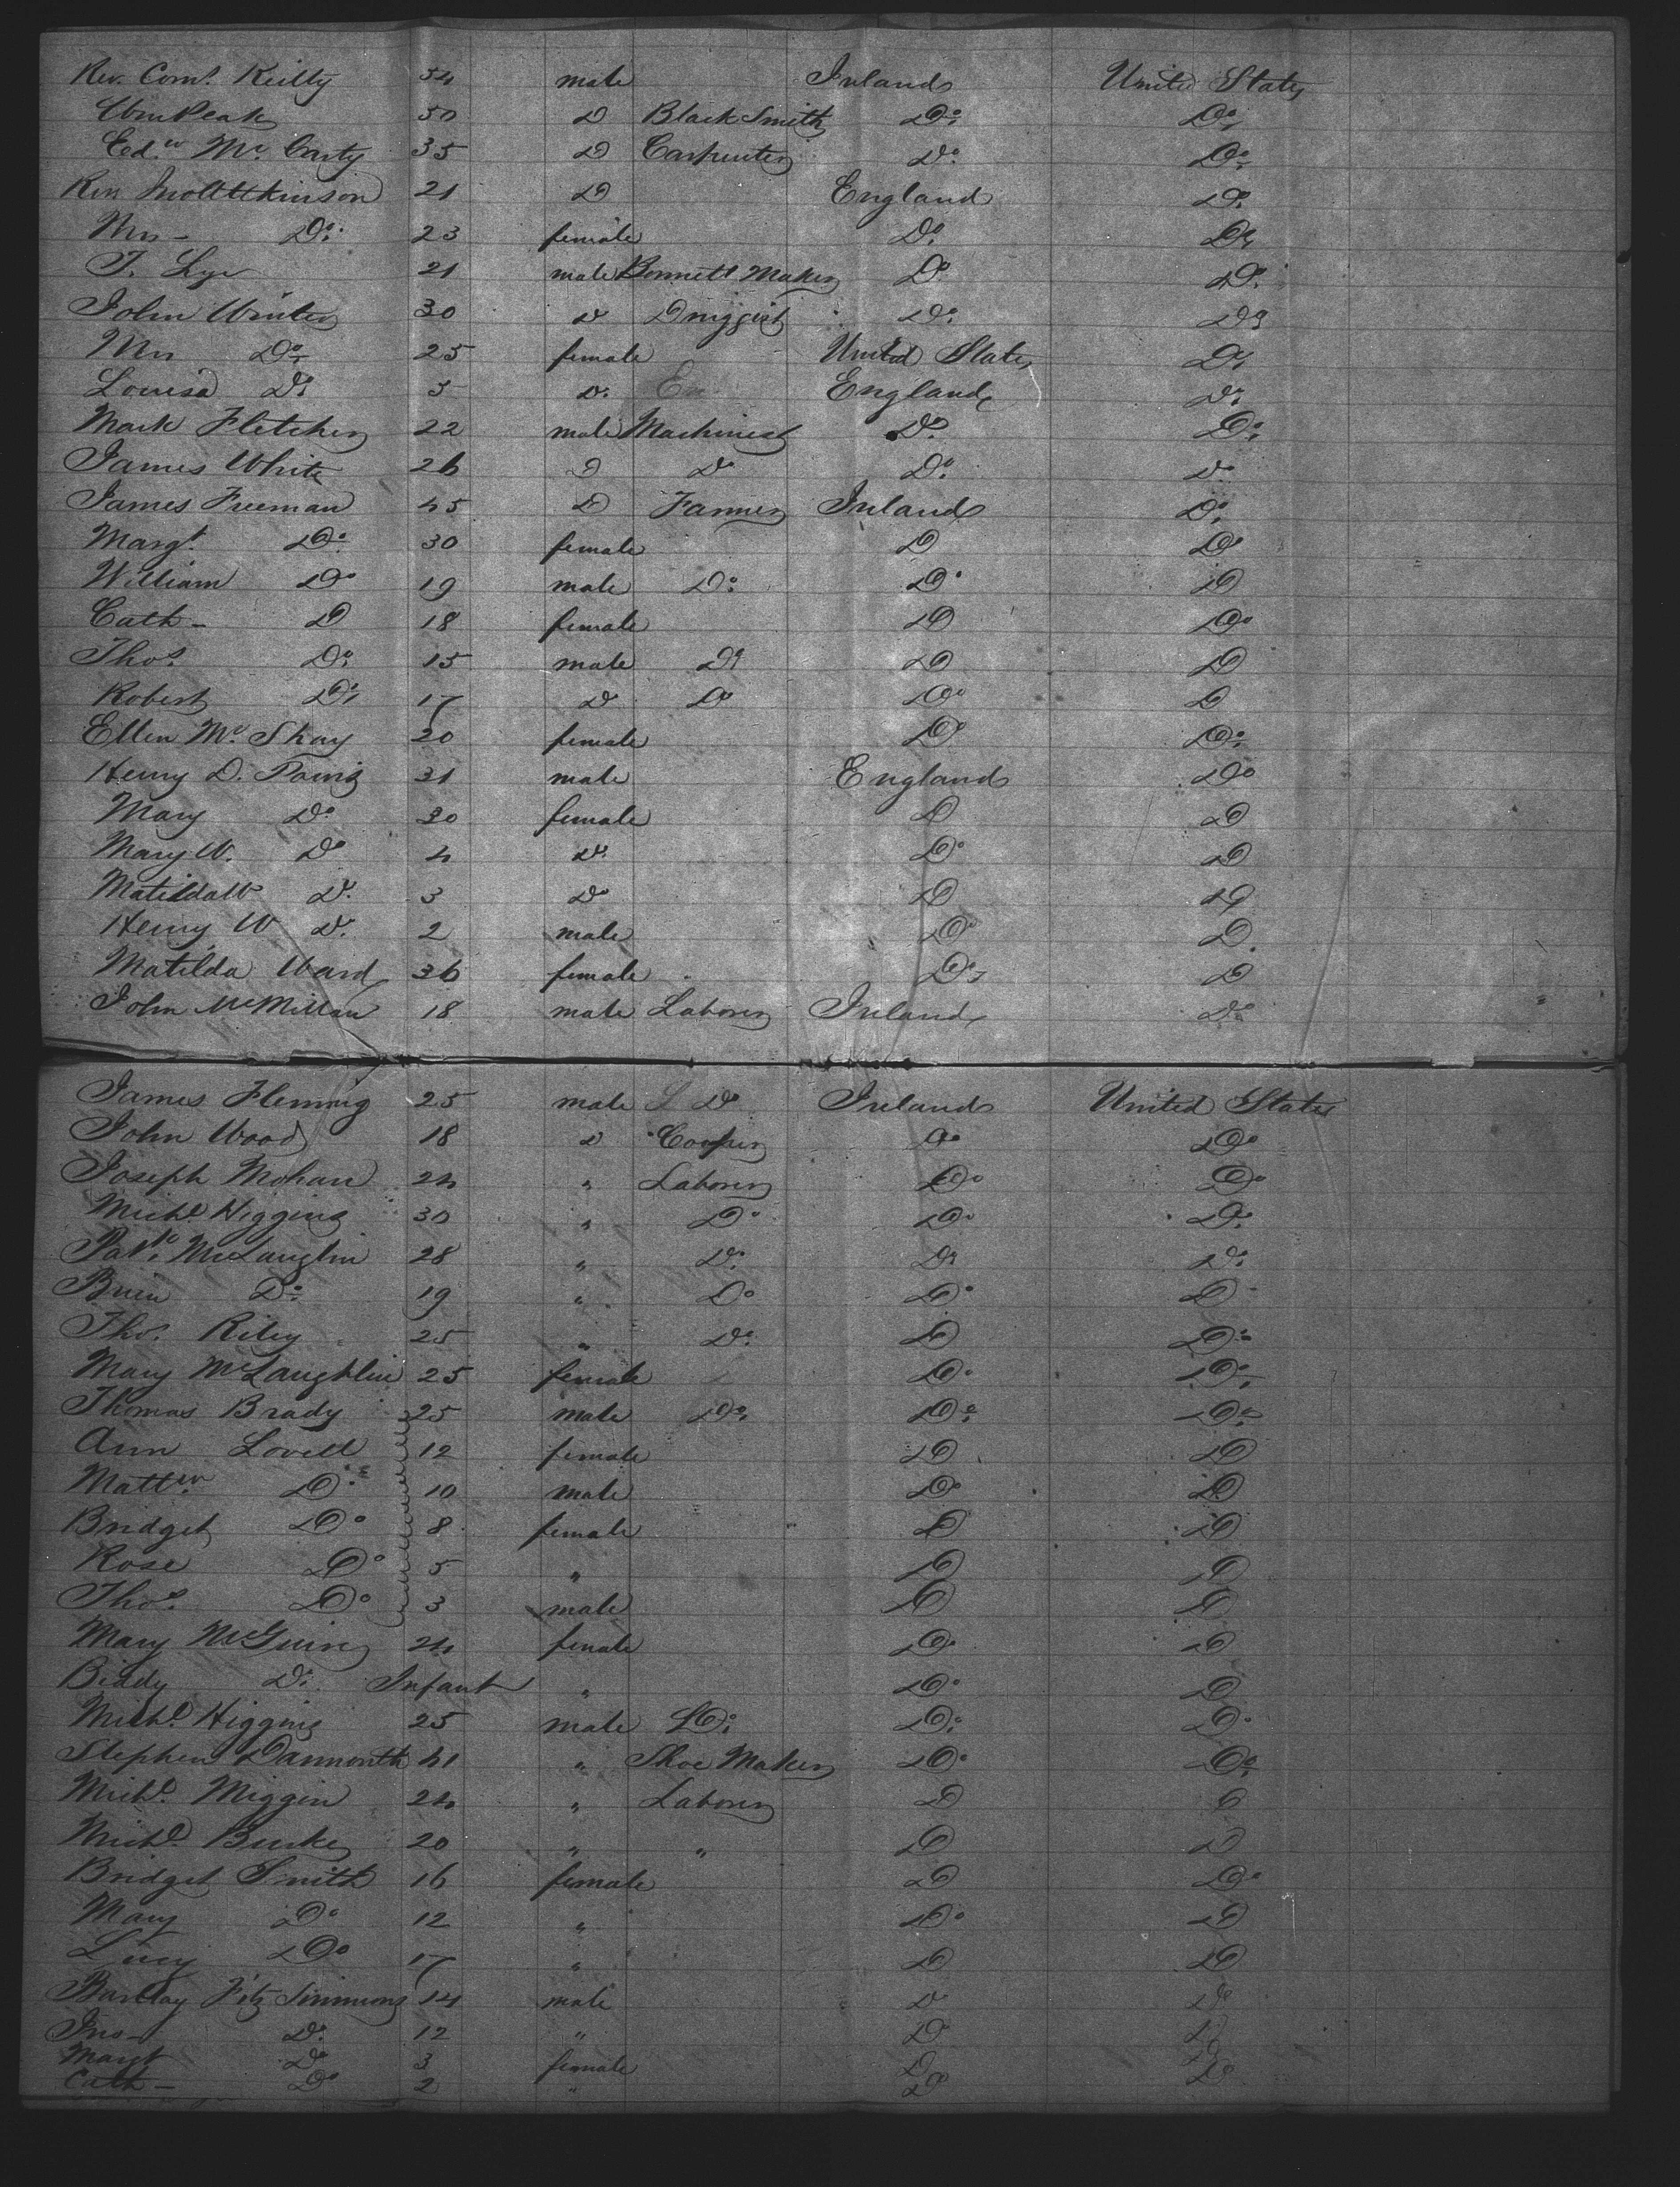 Rev. Corns. Reilly 54 male Ireland United States
Wm Peak 50 D Black Smith Do. Do.
Edw. Mc. Carty 35 D Carpenter Do. Do.
Rev. Jno Atkinson 21 D England Do.
Mrs - Do. 23 female Do. Do.
T. Lye 21 male Bonnett Maker Do. Do.
John Winter 30 Do Druggist Do. Do.
Mrs Do. 25 female United States Do.
Louisa Do. 3 Do. En England Do.
Mark Fletcher 22 male Machinest Do. Do.
James White 26 D Do Do. Do
James Freeman 45 D Farmer Ireland Do.
Margt. Do. 30 female D Do
William Do 19 male Do. Do. D
Cath - D 18 female D Do
Thos. Do. 15 male Do. D D
Robert Do. 17 Do Do Do D
Ellen Mc. Shay 20 female Do Do.
Henry D. 31 male England Do
Mary Do. 30 female D D
Mary W. Do 4 Do. Do. D
Matilda W Do. 3 Do D D
Henry W Do. 2 male Do D.
Matilda Ward 36 female Do. D
John McMillan 18 male Laborer Ireland Do.
James Fleming 25 male L Do Ireland United States
John Wood 18 D Cooper Do Do
Joseph Mohan 24 " Laborer Do Do
Michl. Higgins 30 " Do. Do. Do.
Patk. McLauglin 28 " Do. Do. Do.
Brien Do. 19 " Do Do. D
Thos. Riley 25 " Do. D Do.
Mary McLaughlin 25 female Do. Do.
Thomas Brady 25 male Do. Do. Do.
Ann Lovell 12 female D D
Mattw. Do. 10 male Do D
Bridget Do 8 female D D
Rose Do 5 " D D
Thos. Do 3 male D D
Mary McGuire 24 female Do. D
Biddy Do. Infant " Do. D
Michl. Higgins 25 male L Do. Do. Do
Stephen Dammonth 41 " Shoe Maker Do. Do.
Michl. Miggin 24 " Laborer D D
Michl. Burke 20 " " D D
Bridget Smith 16 female D Do
Mary Do 12 " Do. D
Lucy Do 17 " D D
Barclay Fitz Simmons 14 male D Do
Jno - Do. 12 " D D
Margt Do 3 female Do Do
Cath - Do 2 " Do Do